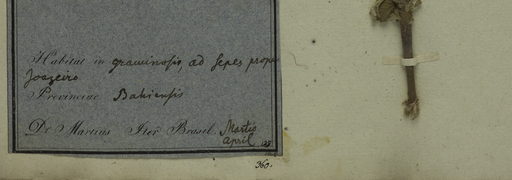 Habitat in graminosis, ad sepes prope
Joazeiro
Provinciae Bahiensis
Dr Martius Iter Brasil. Martio
April
360.